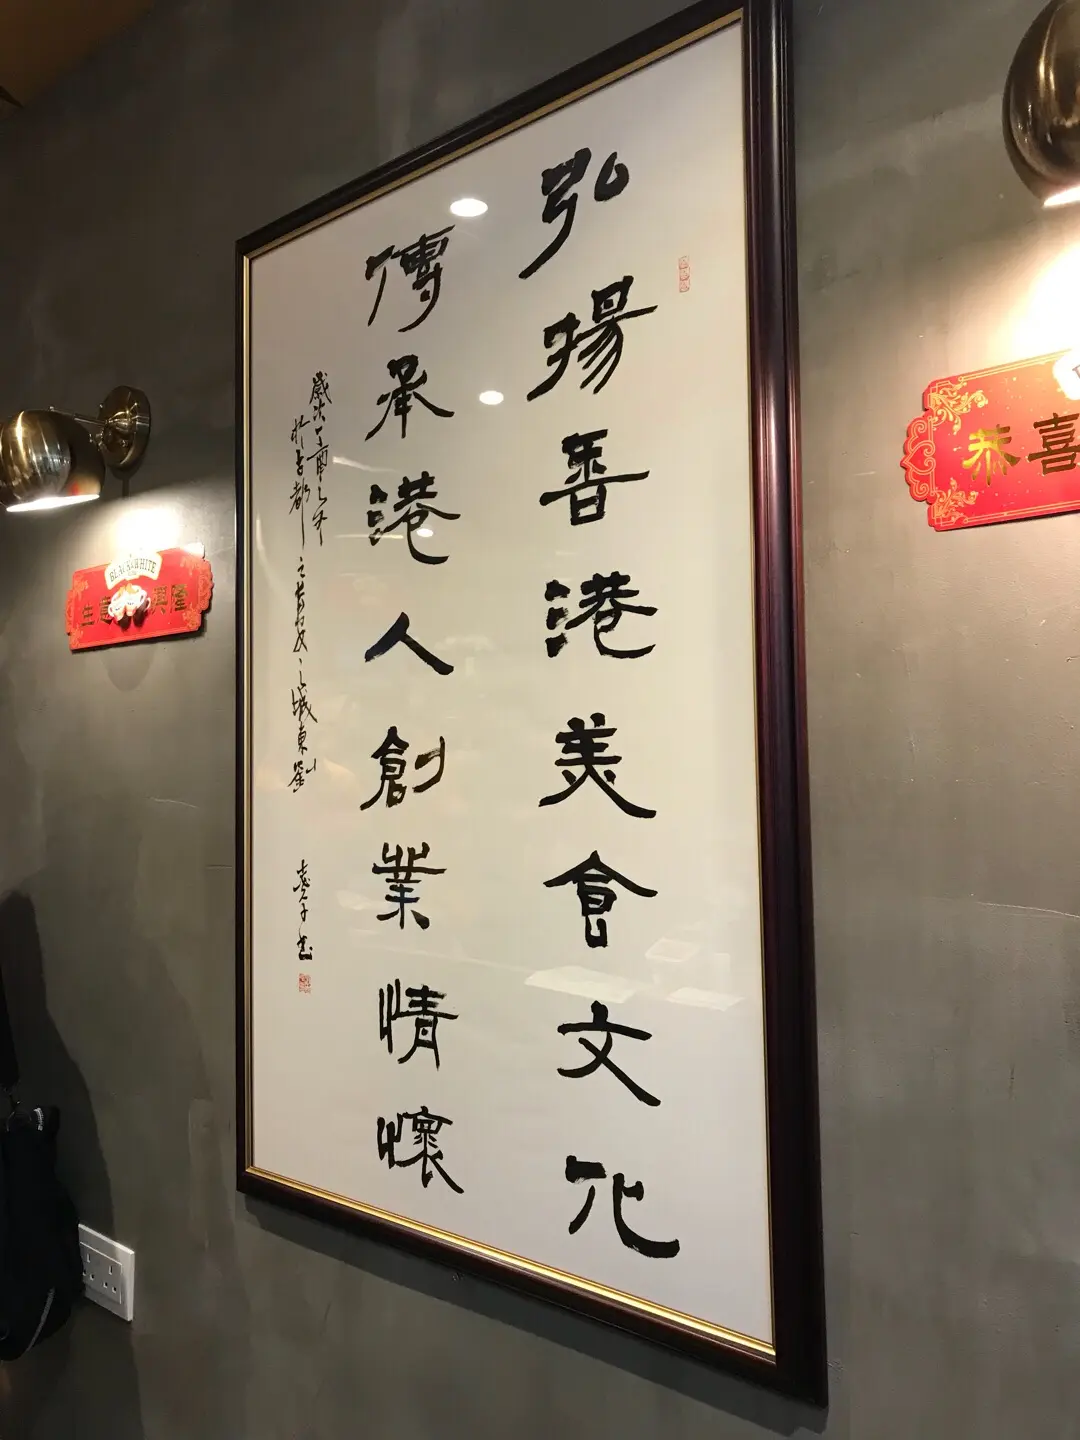 弘揚香港美食文化
傳承港人創業情懷
歲次丁酉之
於古都之
城東劉
恭喜
BLACK&WHITE
生意興隆